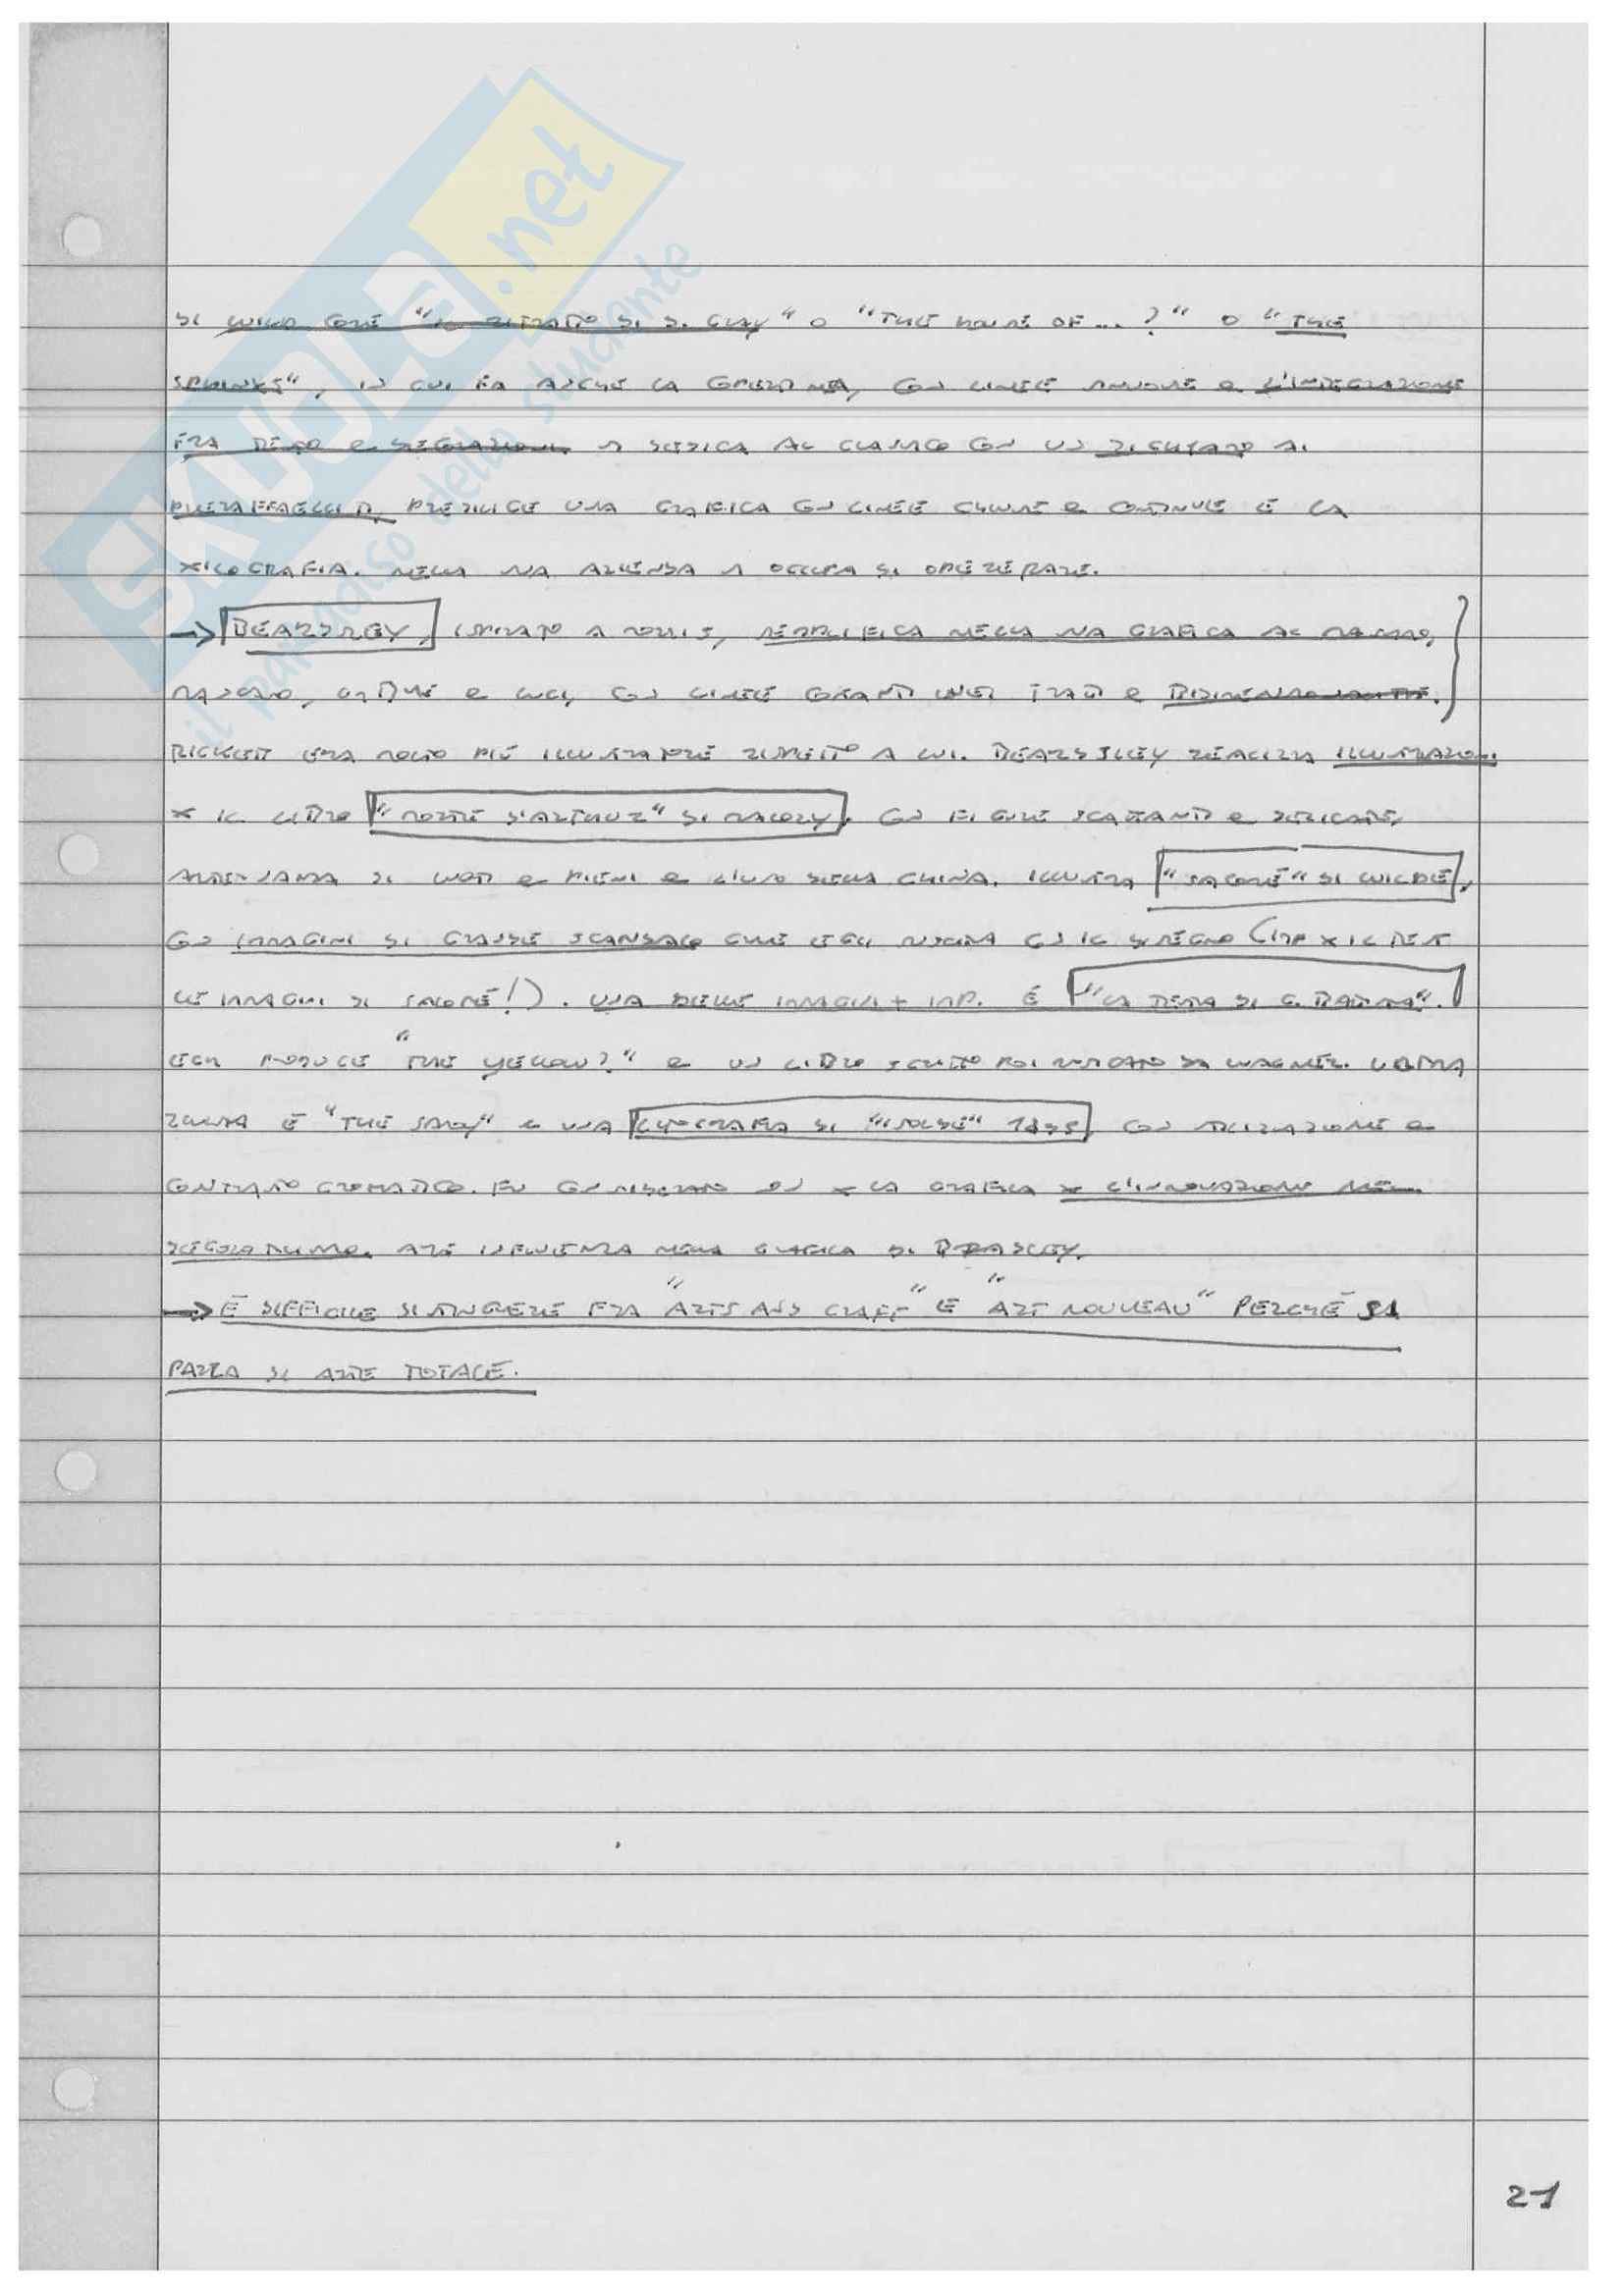 SKUOLA.net
il paradiso dello studente
DI WILD COME "IL RITRATTO DI D. GRAY" O "THE HOUSE OF ... ?" O "THE
SPHINKS", IN CUI FA ANCHE LA COPERTINA, CON LINEE SINUOSE e L'INTEGRAZIONE
FRA TESTO e DECORAZIONI. SI DEDICA AL CLASSICO CON UN RICHIAMO AI
PRERAFFAELLITI, PREDILIGE UNA GRAFICA CON LINEE CHIUSE e CONTINUE E LA
XILOGRAFIA. NELLA SUA AZIENDA SI OCCUPA DI
→ BEARDSLEY, ISPIRATO A MORRIS, SEMPLIFICA NELLA SUA GRAFICA AL MASSIMO,
e LUCI, CON LINEE TRATTI e BIDIMENSIONALITÀ.
RICKETT ERA MOLTO PIÙ ILLUSTRATORE RISPETTO A LUI. BEARDSLEY REALIZZA ILLUSTRAZIONI
X IL LIBRO "MORTE D'ARTHUR" DI MALORY, CON FIGURE SCATTANTI e DELICATE,
ALTERNANZA DI VUOTI e PIENI e L'USO DELLA CHINA. ILLUSTRA "SALOMÈ" DI WILDE,
CON IMMAGINI DI GRANDE SCANDALO CHE EGLI CON IL DISEGNO (IMP X IL TEST
LE IMMAGINI DI SALOMÈ!). UNA DELLE IMMAGINI + IMP. È "LA TESTA DI G. BATTISTA".
EGLI PRODUCE "THE YELLOW ?" e UN LIBRO SCRITTO POI DA WAGNER. ULTIMA
RIVISTA È "THE SAVOY" e UNA LITOGRAFIA DI "ISOLDE" 1895, CON STILIZZAZIONE e
CONTRASTO CROMATICO. FU CONSIDERATO X LA GRAFICA X L'INNOVAZIONE NEL
SECOLO ALTRA INFLUENZA NELLA GRAFICA DI BRADLEY.
→ È DIFFICILE DISTINGUERE FRA "ARTS AND CRAFT" E "ART NOUVEAU" PERCHÉ SI
PARLA DI ARTE TOTALE.
21